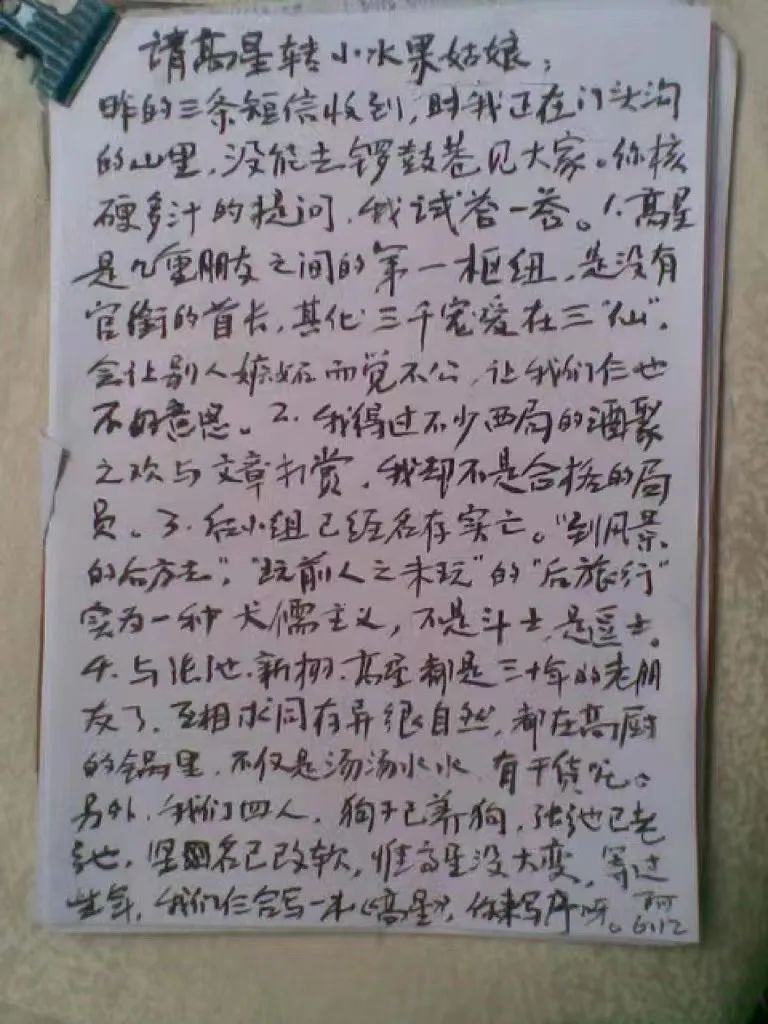 请高星转小水果姑娘：
昨的三条短信收到，时我正在门头沟
的山里，没能去锣鼓巷见大家。你核
硬多汁的提问，我试答一答。1.高星
是几重朋友之间的第一枢纽，是没有
官衔的首长，其化三千宠爱在三“仙”，
会让别人嫉妒而觉不公，让我们仨也
不好意思。2.我得过不少西局的酒聚
之欢与文章打赏，我却不是合格的局
员。3.红小组已经名存实亡。“到风景
的后方去”，“玩前人之未玩”的“后旅行”
实为一种犬儒主义，不是斗士，是逗士。
4.与张弛、新栩、高星都是三十年的老朋
友了，互相求同存异很自然，都在高厨
的锅里，不仅是汤汤水水，有干货吃。
另外，我们四人，狗子已养狗，张弛已老
弛，坚名已改软，惟高星没大变，等过
些年，我们仨合写一本《高星》，你来写序呀。阿
6.12